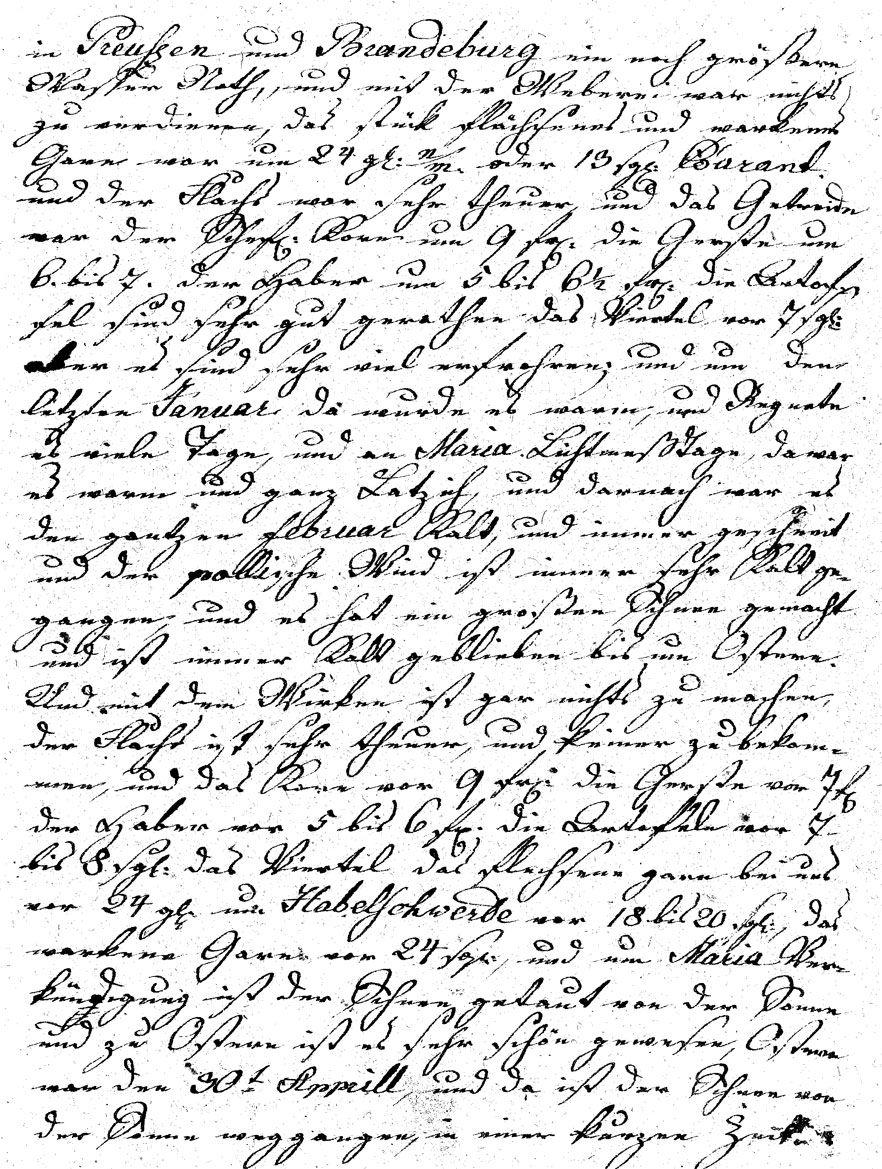 in Preußen und Brandeburg ein noch größere
Wasser Noth, und mit der Weberei war nichts
zu verdienen, das stück flächsenes und warkenes
Garn war um 24 gl: oder 13 sgl: Courant
und der Flachs war sehr theuer, und das Getreide
war der Schefl: Korn um 9 fr: die Gerste um
6. bis 7. der Haber um 5 bis 6½ fr: die Artof-
fel sind sehr gut gerathen das Viertel vor 7 sgl:
aber es sind sehr viel erfrohren; und um den
letzten Januar da wurde es warm, und Regnete
es viele Tage, und an Maria Lichtmeßtage, da war
es warm und ganz Latzich, und darnach war es
den gantzen Februar Kalt, und immer geschneit
und der pollische Wind ist immer sehr Kalt ge-
gangen, und es hat ein großen Schnee gemacht
und ist immer Kalt geblieben bis um Ostern.
Und mit dem Wirken ist gar nichts zu machen,
der Flachs ist sehr theuer, und keiner zu bekom-
men, und das Korn vor 9 fr: die Gerste vor 7 fr
der Haber vor 5 bis 6 fr: die Artofeln vor 7
bis 8 sgl: das Viertel das flechsene garn bei uns
vor 24 gl: um Habelschwerde vor 18 bis 20 sgl:, das
warkene Garn vor 24 sgr:, und um Maria Ver-
kündigung ist der Schnee getaut von der Sonne
und zu Ostern ist es sehr schön gewesen, Ostern
war den 30t Appril, und da ist der Schnee von
der Sonne weggangen, in einer kurzen Zeit.